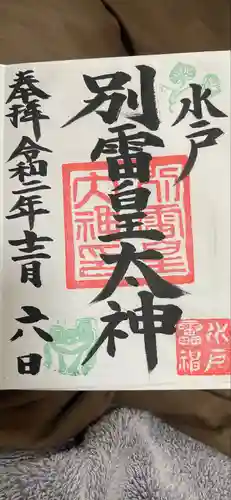 水戸
別雷皇太神
奉拝 令和二年十二月 六日
別雷皇太神印
水戸雷神